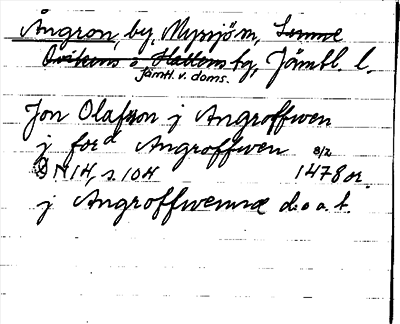 Ångron, by, Myssjö sn, Sunne
Ovikens o Hallens tg, Jämtl. l.
Jämtl. v. doms.
Jon Olafson j Angroffwen
j ford Angroffwen 8/2
DN 14, s. 104 1478 or.
j Angroffwemæ d:o a.t.